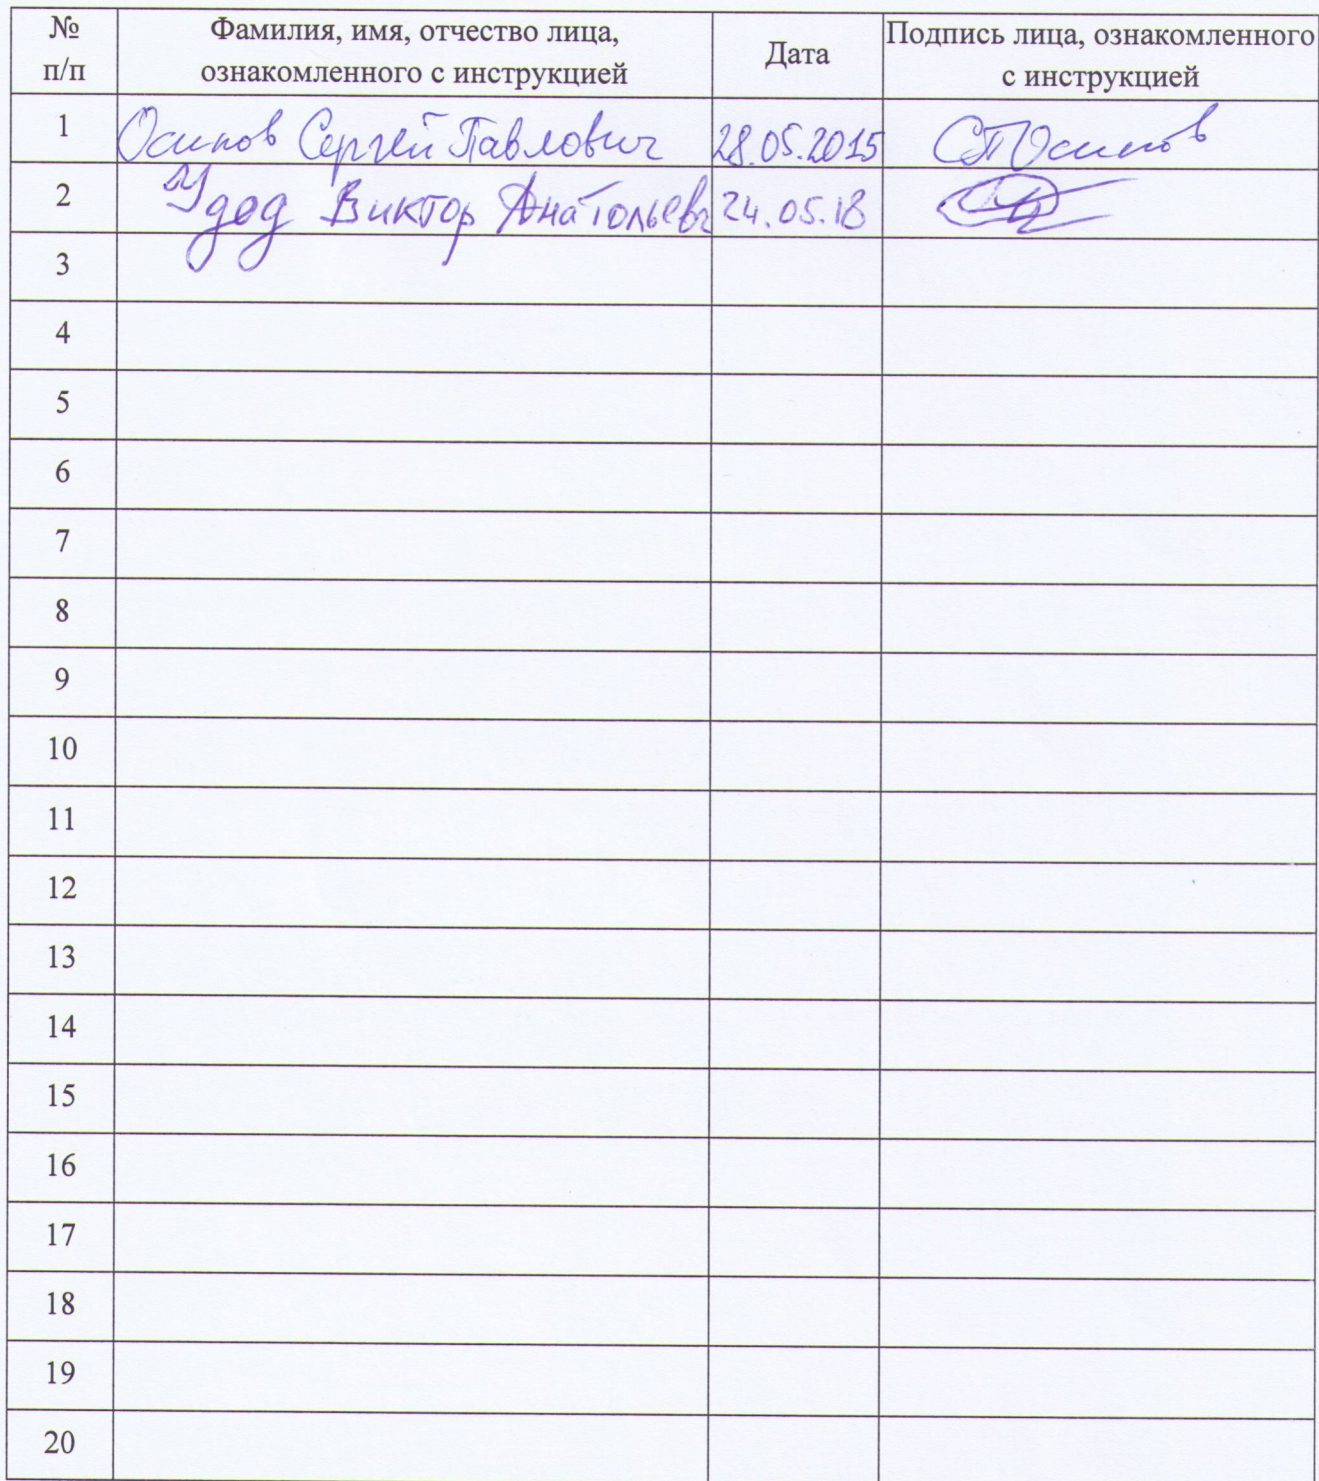 № п/п
Фамилия, имя, отчество лица,
ознакомленного с инструкцией
Дата
Подпись лица, ознакомленного
с инструкцией
1 Осипов Сергей Павлович 28.05.2015 СПОсипов
2 Удод Виктор Анатольевч 24.05.18
3
4
5
6
7
8
9
10
11
12
13
14
15
16
17
18
19
20